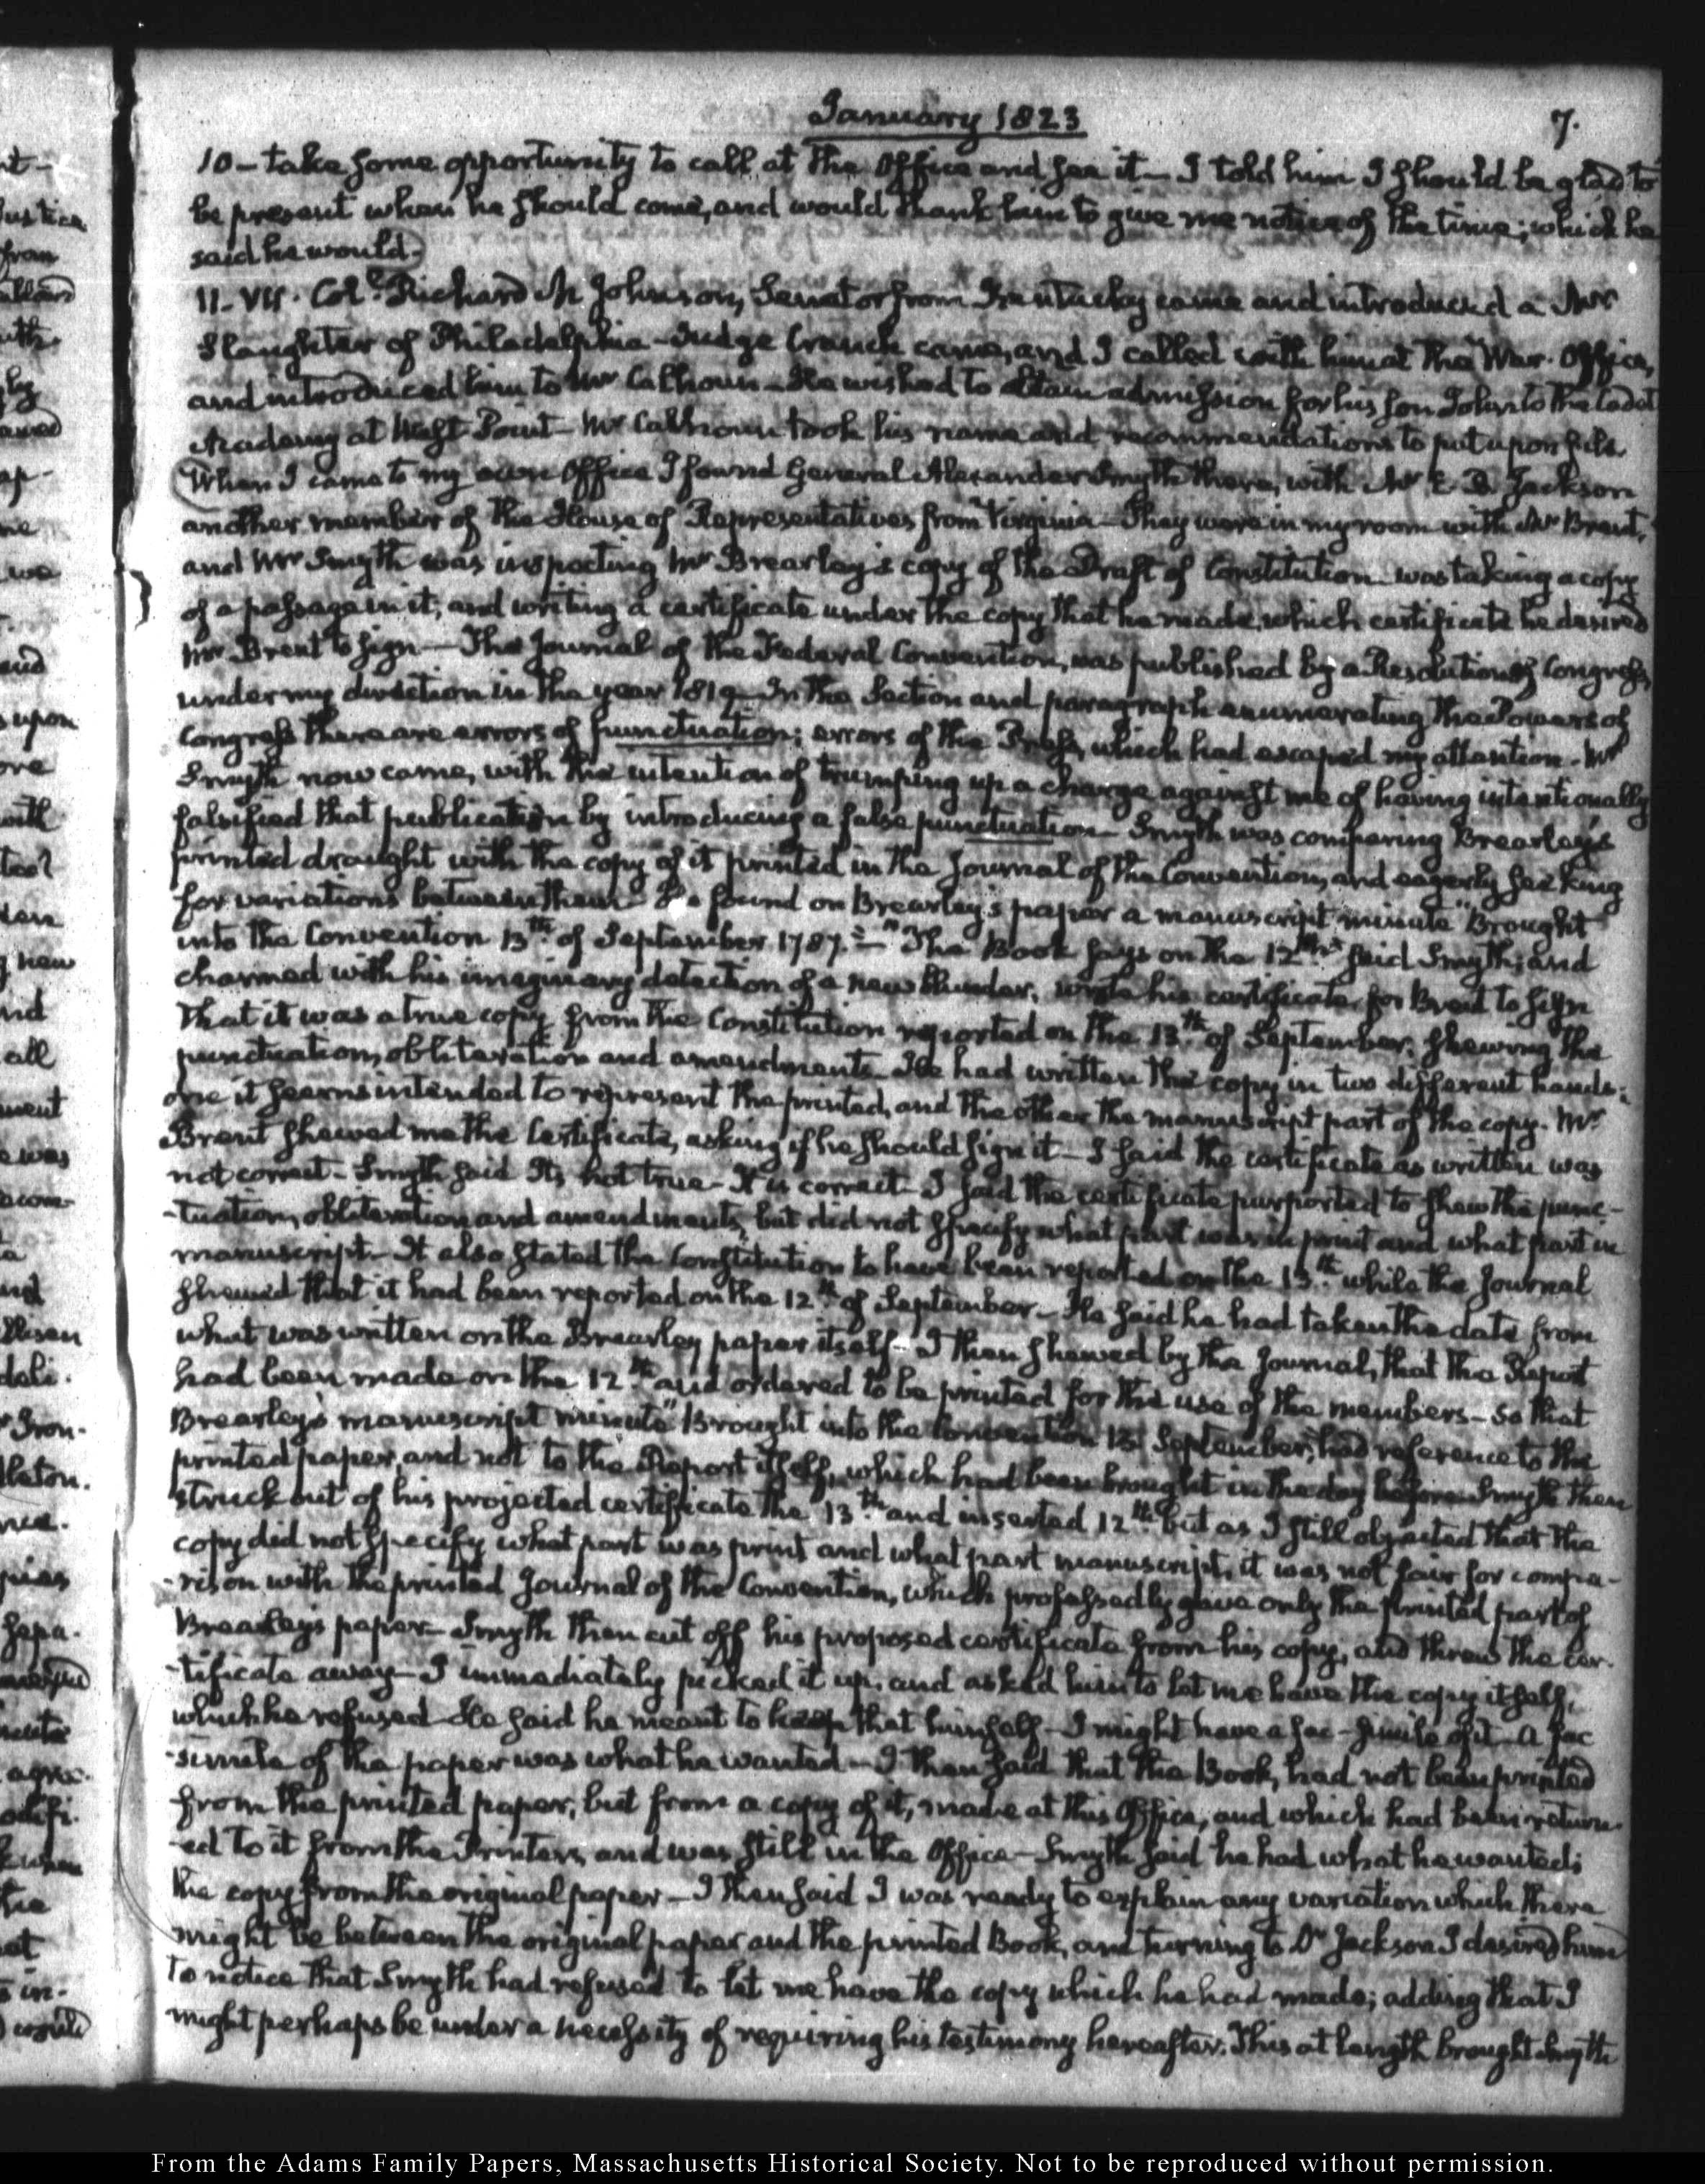 January 1823
7.
10 - take some opportunity to call at the Office and see it - I told him I should be glad to
be present when he should come, and would thank him to give me notice of the time; which he
said he would.
11. VII. Coll. Richard M Johnson, Senator from Kentucky came and introduced a Mr
Slaughter of Philadelphia - Judge Cranch came, and I called with him at the War Office,
and introduced him to Mr Calhoun - He wished to obtain admission for his son John to the Cadet
Academy at West Point - Mr Calhoun took his name and recommendations to put upon file.
When I came to my own Office I found General Alexander Smyth there, with Mr E. B. Jackson
another member of the House of Representatives from Virginia - They were in my room with Mr Brent,
and Mr Smyth was inspecting Mr Brearley's copy of the Draft of Constitution was taking a copy
of a passage in it, and writing a certificate under the copy that he made, which certificate he desired
Mr Brent to sign - The Journal of the Federal Convention, was published by a Resolution of Congress,
under my direction in the year 1819 - In the Section and paragraph enumerating the Powers of
Congress there are errors of punctuation; errors of the Press, which had escaped my attention. Mr
Smyth now came, with the intention of trumping up a charge against me of having intentionally
falsified that publication by introducing a false punctuation - Smyth was comparing Brearley's
printed draught with the copy of it printed in the Journal of the Convention, and eagerly seeking
for variations between them - He found on Brearley's paper a manuscript minute "Brought
into the Convention 13th of September 1787. -" "The Book says on the 12th" said Smyth; and
charmed with his imaginary detection of a new blunder, wrote his certificate for Brent to sign
that it was a true copy from the Constitution reported on the 13th of September, shewing the
punctuation, obliteration and amendments. He had written the copy in two different hands;
one it seems intended to represent the printed, and the other the manuscript part of the copy. Mr
Brent shewed me the Certificate, asking if he should sign it - I said the certificate as written was
not correct - Smyth said Its not true - It is correct - I said the certificate purported to shew the punc-
-tuation, obliteration and amendments, but did not specify what part was in print and what part in
manuscript - It also stated the Constitution to have been reported on the 13th while the Journal
shewed that it had been reported on the 12th of September - He said he had taken the date from
what was written on the Brearley paper itself - I then shewed by the Journal, that the Report
had been made on the 12th and ordered to be printed for the use of the members - So that
Brearley's manuscript minute "Brought into the Convention 13 September," had reference to the
printed paper, and not to the Report itself, which had been brought in the day before. Smyth then
struck out of his projected certificate the 13th and inserted 12th but as I still objected that the
copy did not specify what part was print and what part manuscript, it was not fair for compa-
-rison with the printed Journal of the Convention, which professedly gave only the printed part of
Brearley's paper - Smyth then cut off his proposed certificate from his copy, and threw the cer-
-tificate away - I immediately picked it up, and asked him to let me have the copy itself,
which he refused - He said he meant to keep that himself - I might have a fac-simile of it - A fac
-simile of the paper was what he wanted - I then said that the Book, had not been printed
from the printed paper, but from a copy of it, made at this Office, and which had been return-
-ed to it from the Printers, and was still in the Office - Smyth said he had what he wanted;
the copy from the original paper - I then said I was ready to explain any variation which there
might be between the original paper and the printed Book, and turning to Dr Jackson I desired him
to notice that Smyth had refused to let me have the copy which he had made; adding that I
might perhaps be under a necessity of requiring his testimony hereafter. This at length brought Smyth
From the Adams Family Papers, Massachusetts Historical Society. Not to be reproduced without permission.